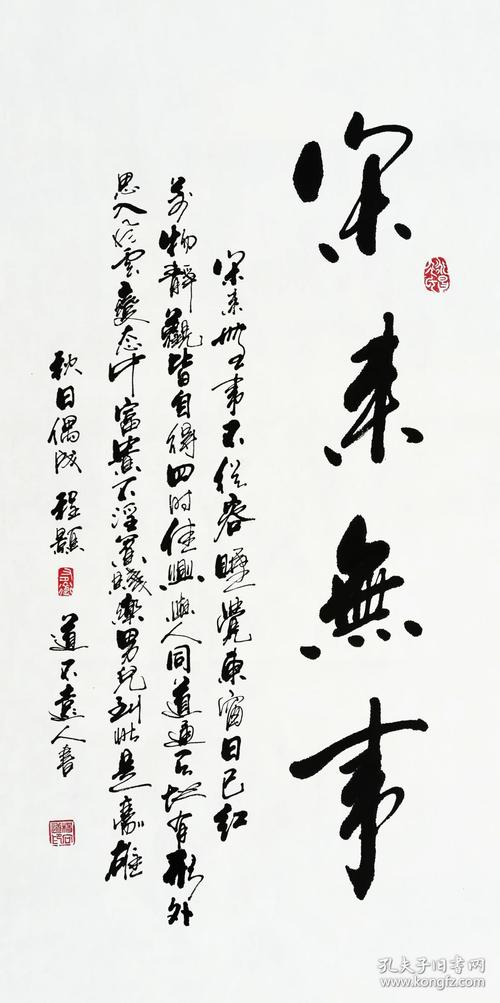 闲来無事
闲来無事不從容睡覺東窗日已红
萬物靜觀皆自得四时佳興與人同道通天地有形外
思入风雲變态中富貴不淫貧賤樂男兒到此是豪雄
秋日偶成 程顥 道不遠人書
孔夫子旧书网
www.kongfz.com